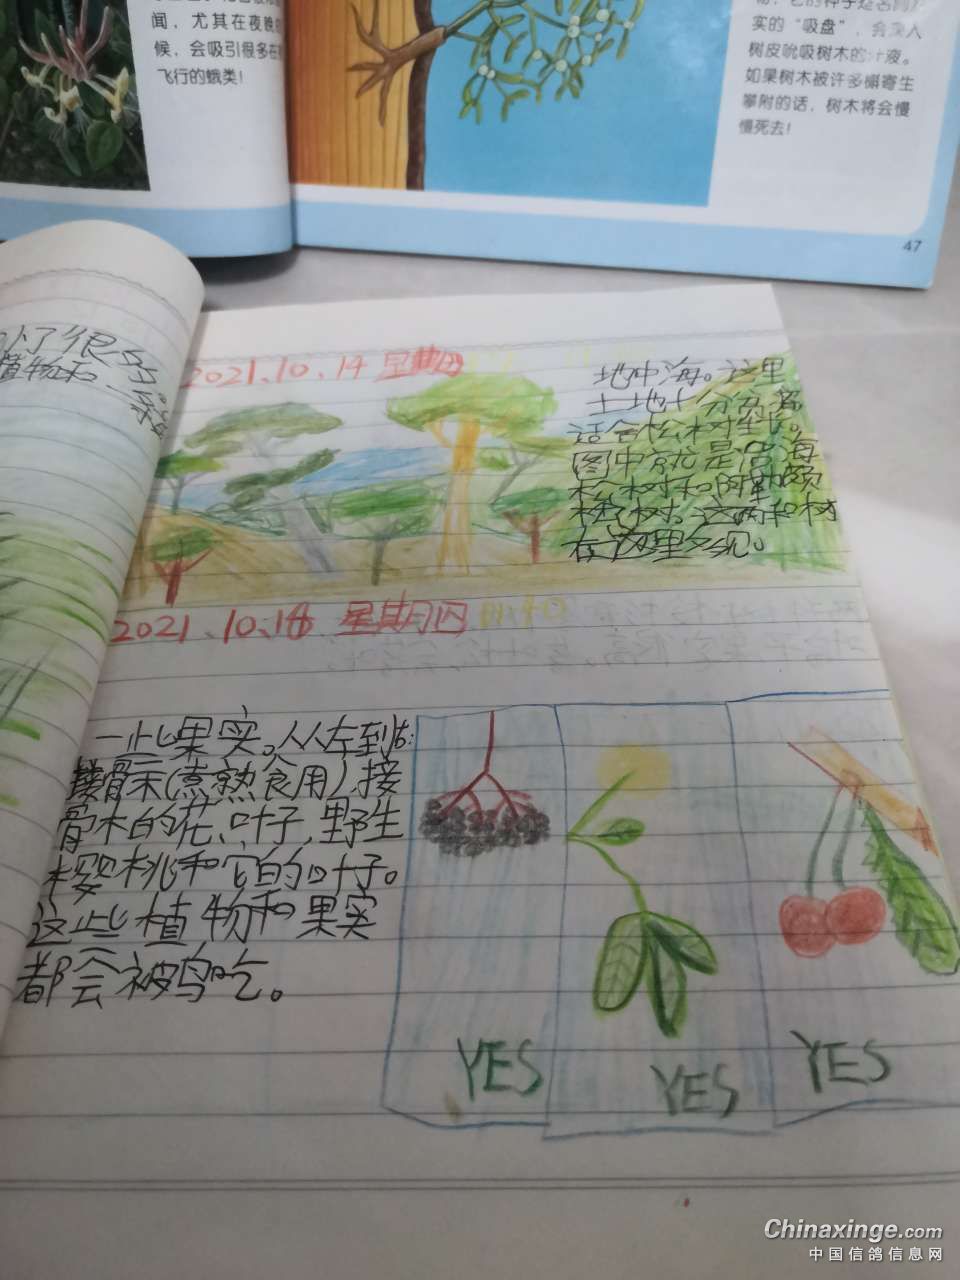 闻，尤其在夜晚
候，会吸引很多在
飞行的蛾类！
实的“吸盘”，会深入
树皮吮吸树木的汁液。
如果树木被许多槲寄生
攀附的话，树木将会慢
慢死去！
47
了很多
植物和
2021.10.14 星期四
地中海。这里
土地十分
适合松树生长。
图中就是
松树和阿勒颇
松树。这两种树
在这里多见。
2021.10.14 星期四 11:40
一些果实。从左到右:
接骨木(煮熟食用),接
骨木的花、叶子,野生
樱桃和它的叶子。
这些植物和果实
都会被鸟吃。
YES
YES
YES
Chinaxinge.com
中国信鸽信息网